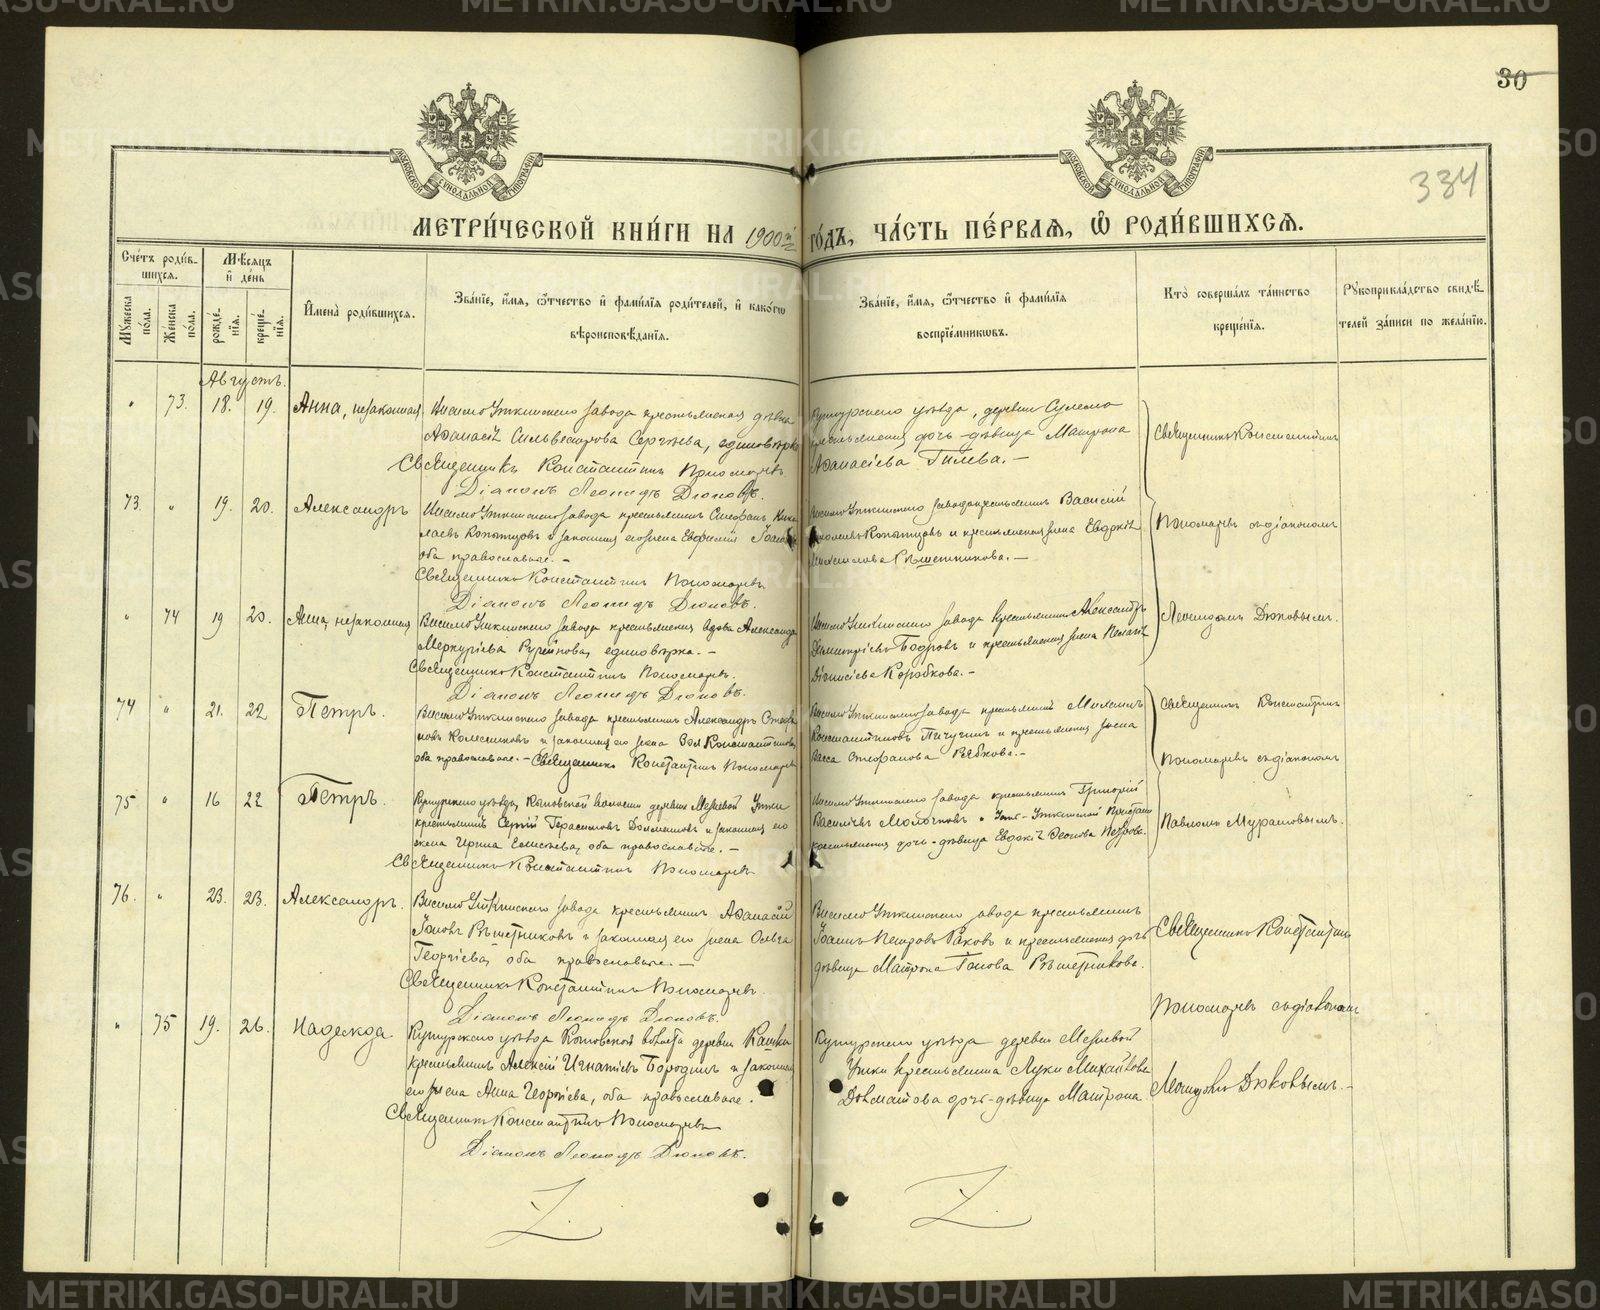 30
334
МОСКОВСКОЙ СѴНОДАЛЬНОЙ ТИПОГРАФІИ
МОСКОВСКОЙ СѴНОДАЛЬНОЙ ТИПОГРАФІИ
МЕТРИ́ЧЕСКОЙ КНИ́ГИ НА 1900й ГО́ДЪ, ЧА́СТЬ ПЕ́РВАЯ, Ѽ РОДИ́ВШИХСЯ.
Сче́тъ роди́в-
шихся.
Мѣ́сяцъ
и҆ де́нь
Му́жеска по́ла.
Же́нска по́ла.
рожде́-нія.
креще́-нія.
И҆мена̀ роди́вшихся.
Зва́ніе, и҆́мя, ѻ҆́тчество и҆ фами́лїя роди́телей, и҆ како́гѡ
вѣроисповѣ́данїя.
Зва́ніе, и҆́мя, ѻ҆́тчество и҆ фами́лїя
воспрїе́мникѡвъ.
Кто̀ соверша́лъ та́инство
креще́нїя.
Рꙋкоприкла́дство свидѣ́-
телей за́писи по жела́нїю.
Августъ.
„ 73. 18. 19. Анна, незаконная
Висимо Уткинскаго завода крестьянская дѣвка
Сильвестрова Сергѣева, единовѣрка
Священникъ Константинъ Пономаревъ
Діаконъ Леонидъ Дюковъ.
Кунгурскаго уѣзда, деревни Сулема
крестьянская дочь-дѣвица Матрона
Аѳанасіева Гилева.-
Священникъ Константинъ
73. „ 19. 20. Александръ
Висимо Уткинскаго завода крестьянинъ Стефанъ
Копытовъ и законная его жена Евфимія
оба православные.-
Священникъ Константинъ Пономаревъ
Діаконъ Леонидъ Дюковъ.
Висимо Уткинскаго завода крестьянинъ Василій
Копытовъ и крестьянская жена Евдокія
Михайлова Рѣшетникова.-
Пономаревъ съ діакономъ
„ 74 19 20. Анна, незаконная
Висимо Уткинскаго завода крестьянская вдова Александра
Меркуріева единовѣрка.-
Священникъ Константинъ Пономаревъ.
Діаконъ Леонидъ Дюковъ.
Висимо Уткинскаго завода крестьянинъ Александръ
Димитріевъ Бодровъ и крестьянская жена Пелагія
Діонисіева Коробкова.-
Леонидомъ Дюковымъ.
74 „ 21. 22 Петръ.
Висимо Уткинскаго завода крестьянинъ Александръ
Колесниковъ и законная его жена Зоя Константинова,
оба православные.- Священникъ Константинъ Пономаревъ
Висимо Уткинскаго завода крестьянинъ Михаилъ
Константиновъ Пичугинъ и крестьянская жена
Васса Стефанова Рябкова.-
Священникъ Константинъ
Пономаревъ съ діакономъ
75 „ 16 22 Петръ.
Кунгурскаго уѣзда, волости деревни Межевой Утки
крестьянинъ Сергій Герасимовъ и законная его
жена Ирина Елисѣева, оба православные.-
Священникъ Константинъ Пономаревъ
Висимо Уткинскаго завода крестьянинъ Григорій
Васильевъ Молочковъ и Усть-Уткинской пристани
крестьянская дочь-дѣвица Евдокія Леонова Петрова.
Павломъ Мурашовымъ.
76. „ 23. 23. Александръ.
Висимо Уткинскаго завода крестьянинъ Аѳанасій
Іоновъ Рѣшетниковъ и законная его жена Ольга
Георгіева, оба православные.-
Священникъ Константинъ Пономаревъ.
Діаконъ Леонидъ Дюковъ.
Висимо Уткинскаго завода крестьянинъ
Іоаннъ Петровъ Раковъ и крестьянская дочь
дѣвица Матрона Іонова Рѣшетникова.
Священникъ Константинъ
Пономаревъ съ діакономъ
„ 75 19. 26. Надежда.
Кунгурскаго уѣзда деревни Кашки
крестьянинъ Алексій Игнатіевъ Бородинъ и законная
его жена Анна Георгіева, оба православные.
Священникъ Константинъ Пономаревъ
Діаконъ Леонидъ Дюковъ.
Кунгурскаго уѣзда деревни Межевой
Утки крестьянина Луки Михайлова
Долматова дочь-дѣвица Матрона.
Леонидомъ Дюковымъ.-
METRIKI.GASO-URAL.RU